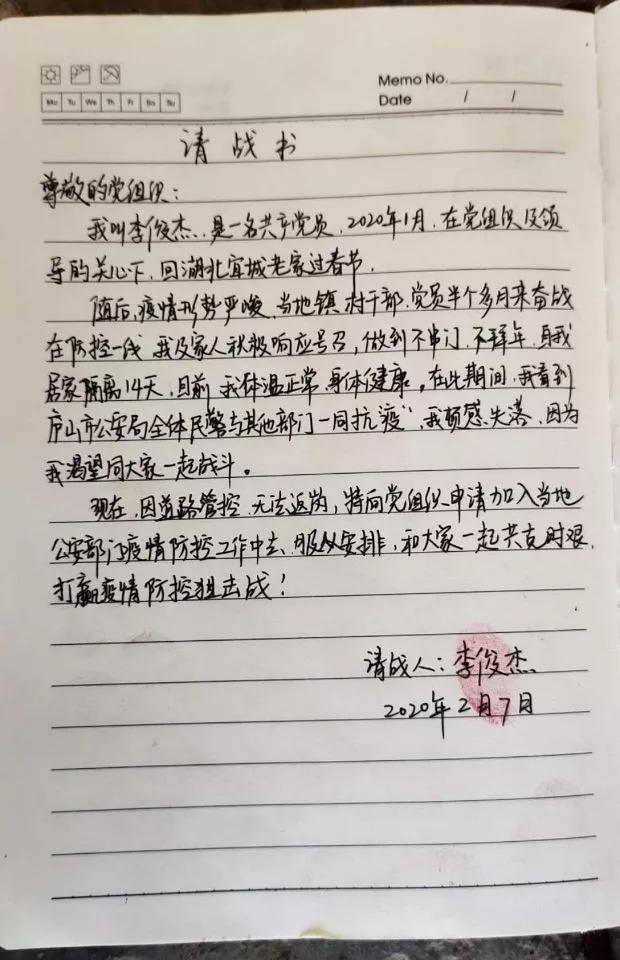 Memo No.
Mo Tu We Th Fr Sa Su
Date / /
请战书
尊敬的党组织：
我叫李俊杰，是一名共产党员，2020年1月，在党组织及领
导的关心下，回湖北宜城老家过春节。
随后，疫情形势严峻，当地镇、村干部、党员半个多月来奋战
在防控一线，我及家人积极响应号召，做到不串门、不拜年，自我
居家隔离14天，目前，我体温正常，身体健康。在此期间，我看到
庐山市公安局全体民警与其他部门一同抗“疫”，我顿感失落，因为
我渴望同大家一起战斗。
现在，因道路管控，无法返岗，特向党组织申请加入当地
公安部门疫情防控工作中去，服从安排，和大家一起共克时艰，
打赢疫情防控狙击战！
请战人：李俊杰
2020年2月7日